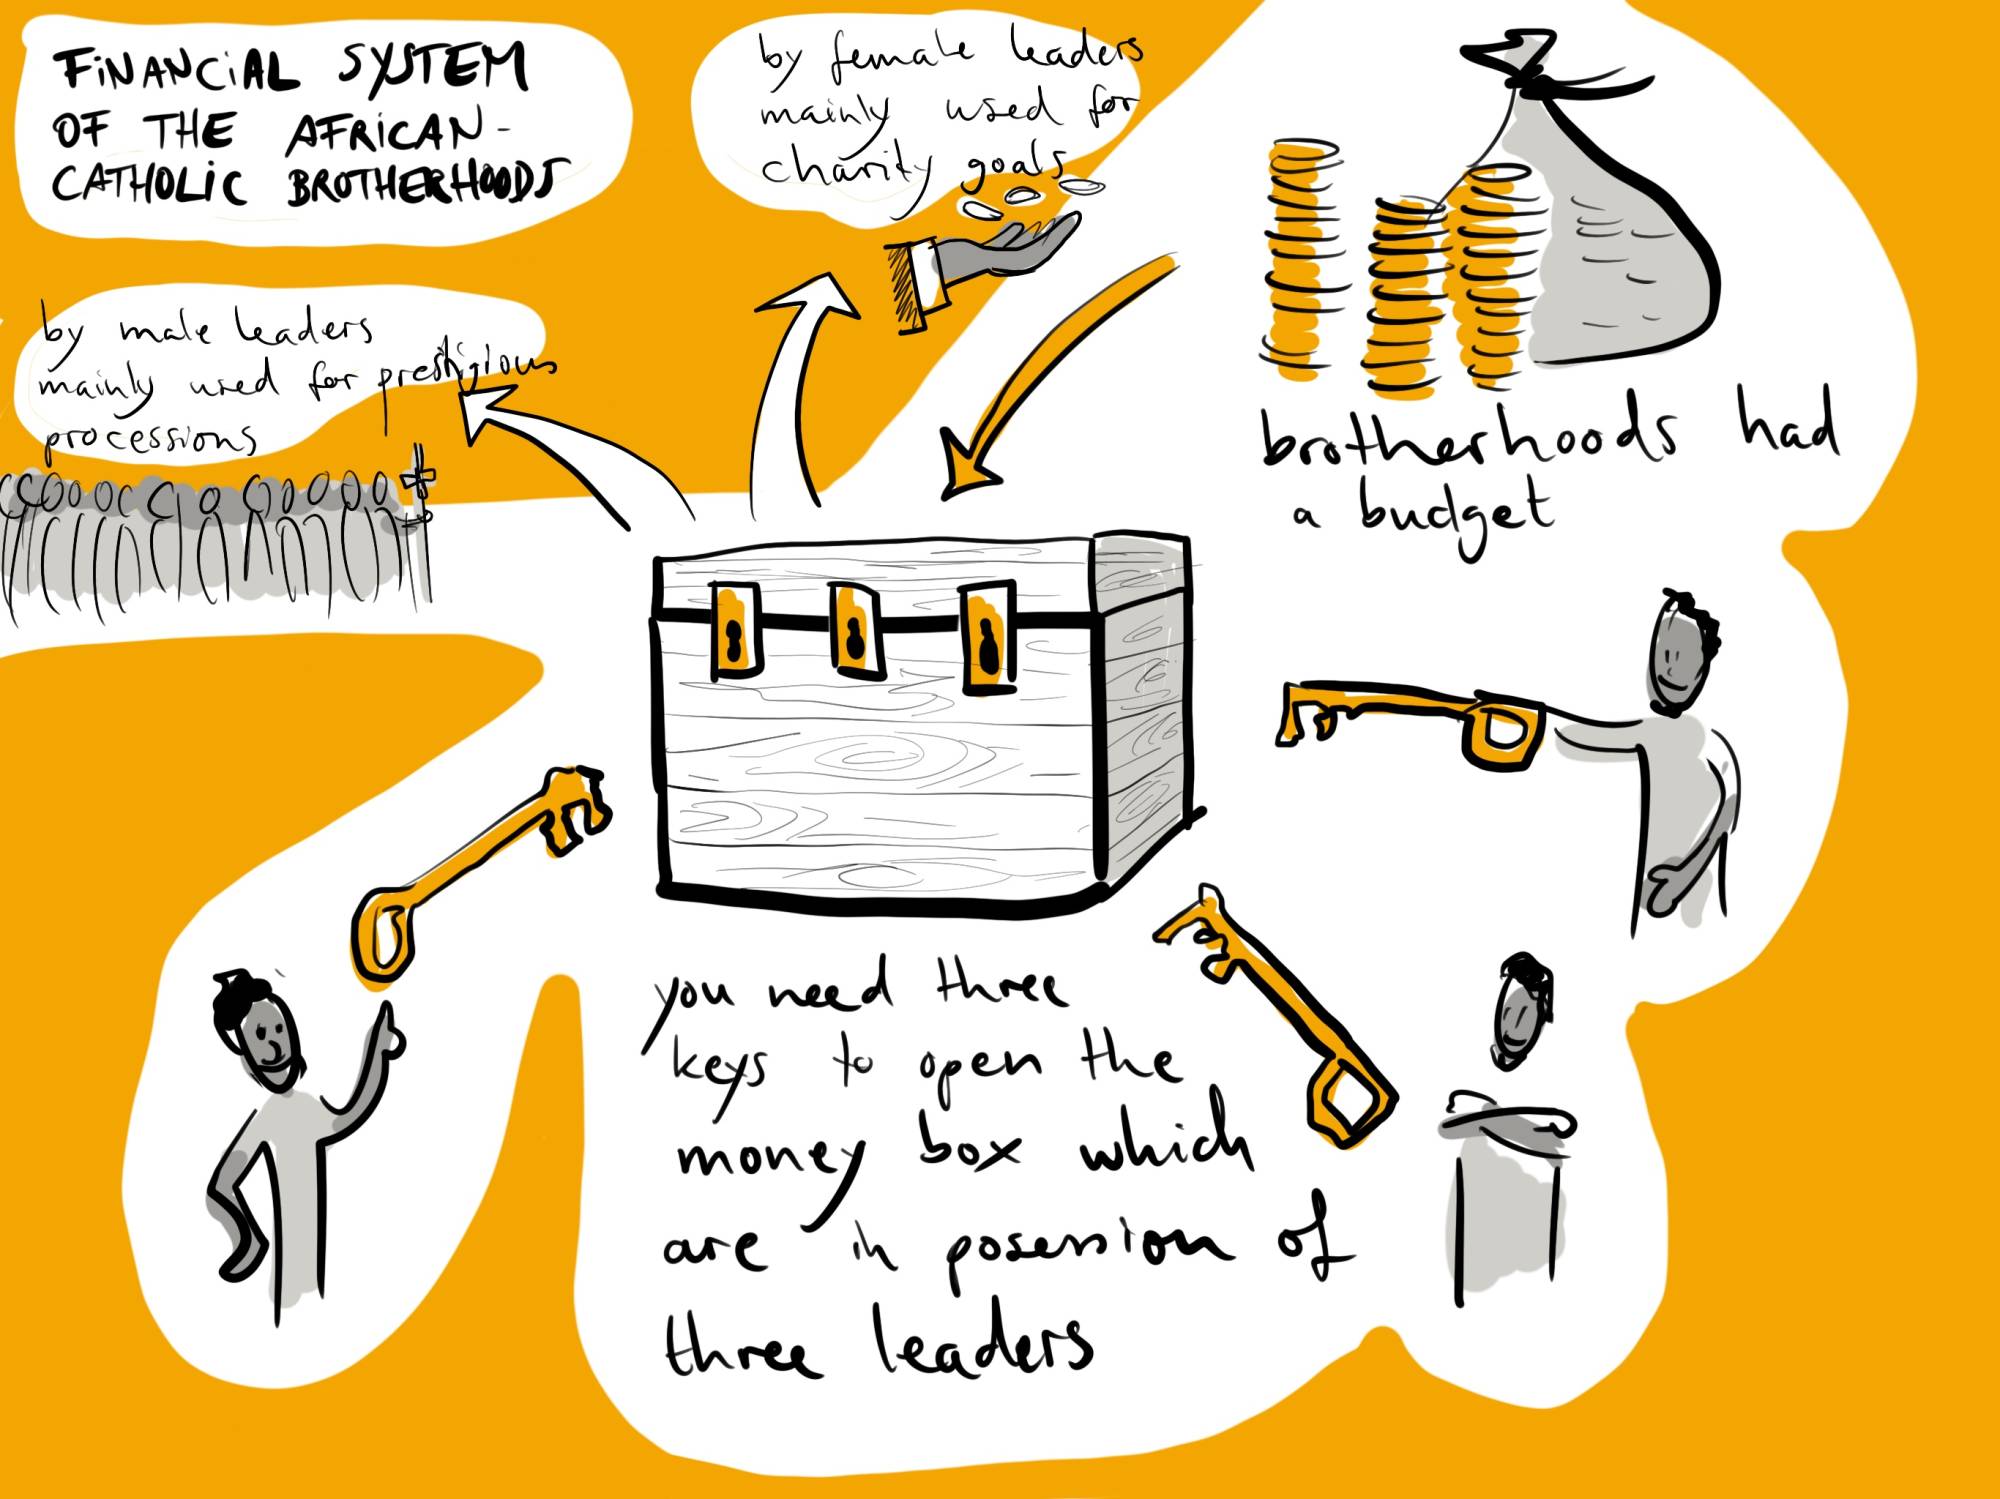 FINANCIAL SYSTEM
OF THE AFRICAN-
CATHOLIC BROTHERHOODS
by female leaders
mainly used for
charity goals
by male leaders
mainly used for prestigious
processions
brotherhoods had
a budget
you need three
keys to open the
money box which
are in posession of
three leaders